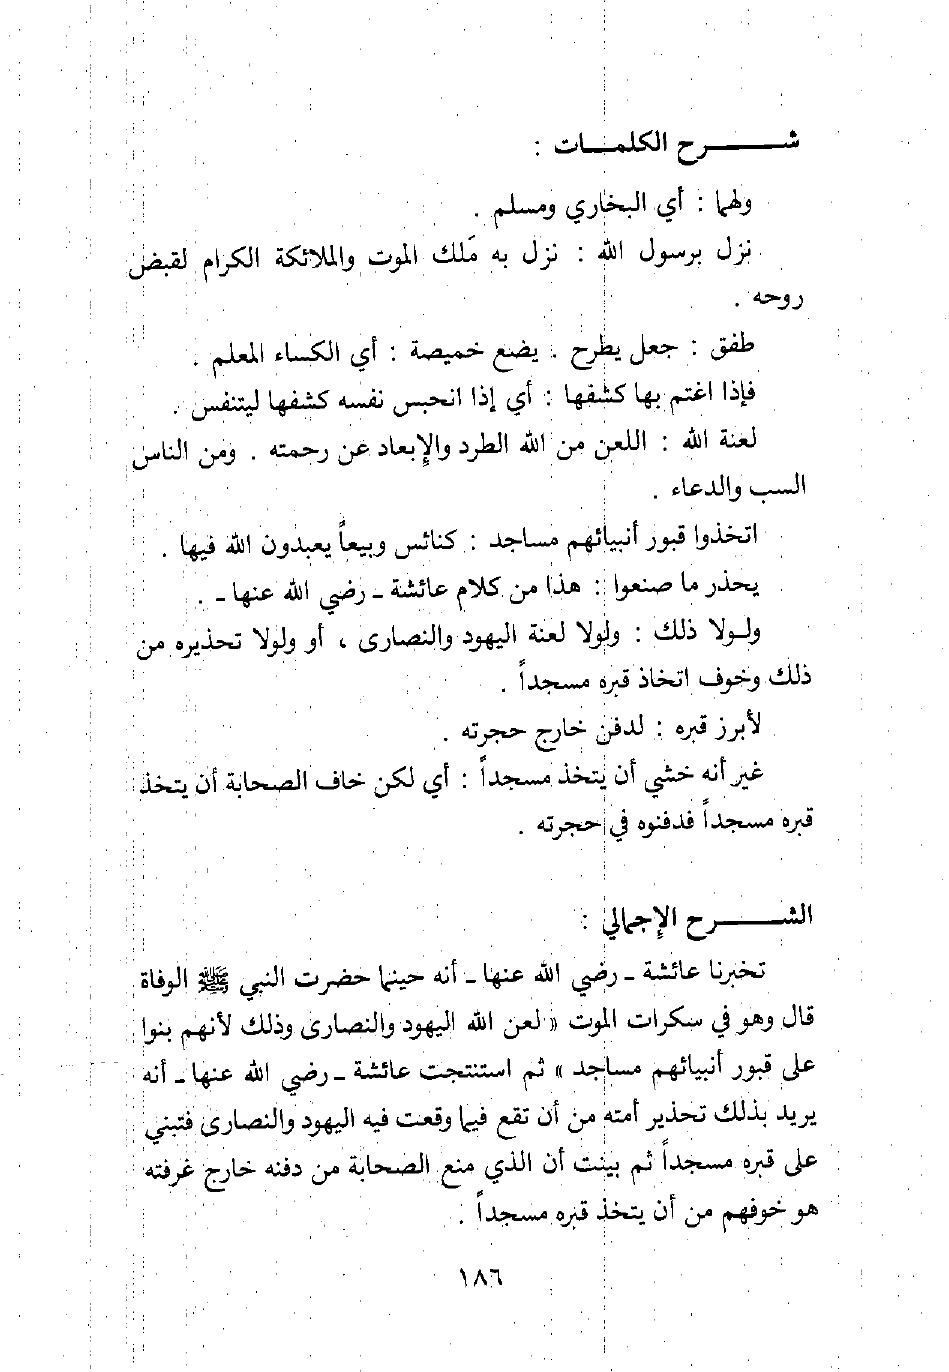 شـــــرح الكلمـــات :
ولهما : أي البخاري ومسلم .
نزل برسول الله : نزل به مَلك الموت والملائكة الكرام لقبض
روحه .
طفق : جعل يطرح . يضع خميصة : أي الكساء المعلم .
فإذا اغتم بها كشفها : أي إذا انحبس نفسه كشفها ليتنفس .
لعنة الله : اللعن من الله الطرد والإبعاد عن رحمته . ومن الناس
السب والدعاء .
اتخذوا قبور أنبيائهم مساجد : كنائس وبيعاً يعبدون الله فيها .
يحذر ما صنعوا : هذا من كلام عائشة ـ رضي الله عنها ـ .
ولـولا ذلك : ولولا لعنة اليهود والنصارى ، أو ولولا تحذيره من
ذلك وخوف اتخاذ قبره مسجداً .
لأبرز قبره : لدفن خارج حجرته .
غير أنه خشي أن يتخذ مسجداً : أي لكن خاف الصحابة أن يتخذ
قبره مسجداً فدفنوه في حجرته .
الشـــــرح الإجمالي :
تخبرنا عائشة ـ رضي الله عنها ـ أنه حينما حضرت النبي ﷺ الوفاة
قال وهو في سكرات الموت « لعن الله اليهود والنصارى وذلك لأنهم بنوا
على قبور أنبيائهم مساجد » ثم استنتجت عائشة ـ رضي الله عنها ـ أنه
يريد بذلك تحذير أمته من أن تقع فيما وقعت فيه اليهود والنصارى فتبني
على قبره مسجداً ثم بينت أن الذي منع الصحابة من دفنه خارج غرفته
هو خوفهم من أن يتخذ قبره مسجداً .
١٨٦